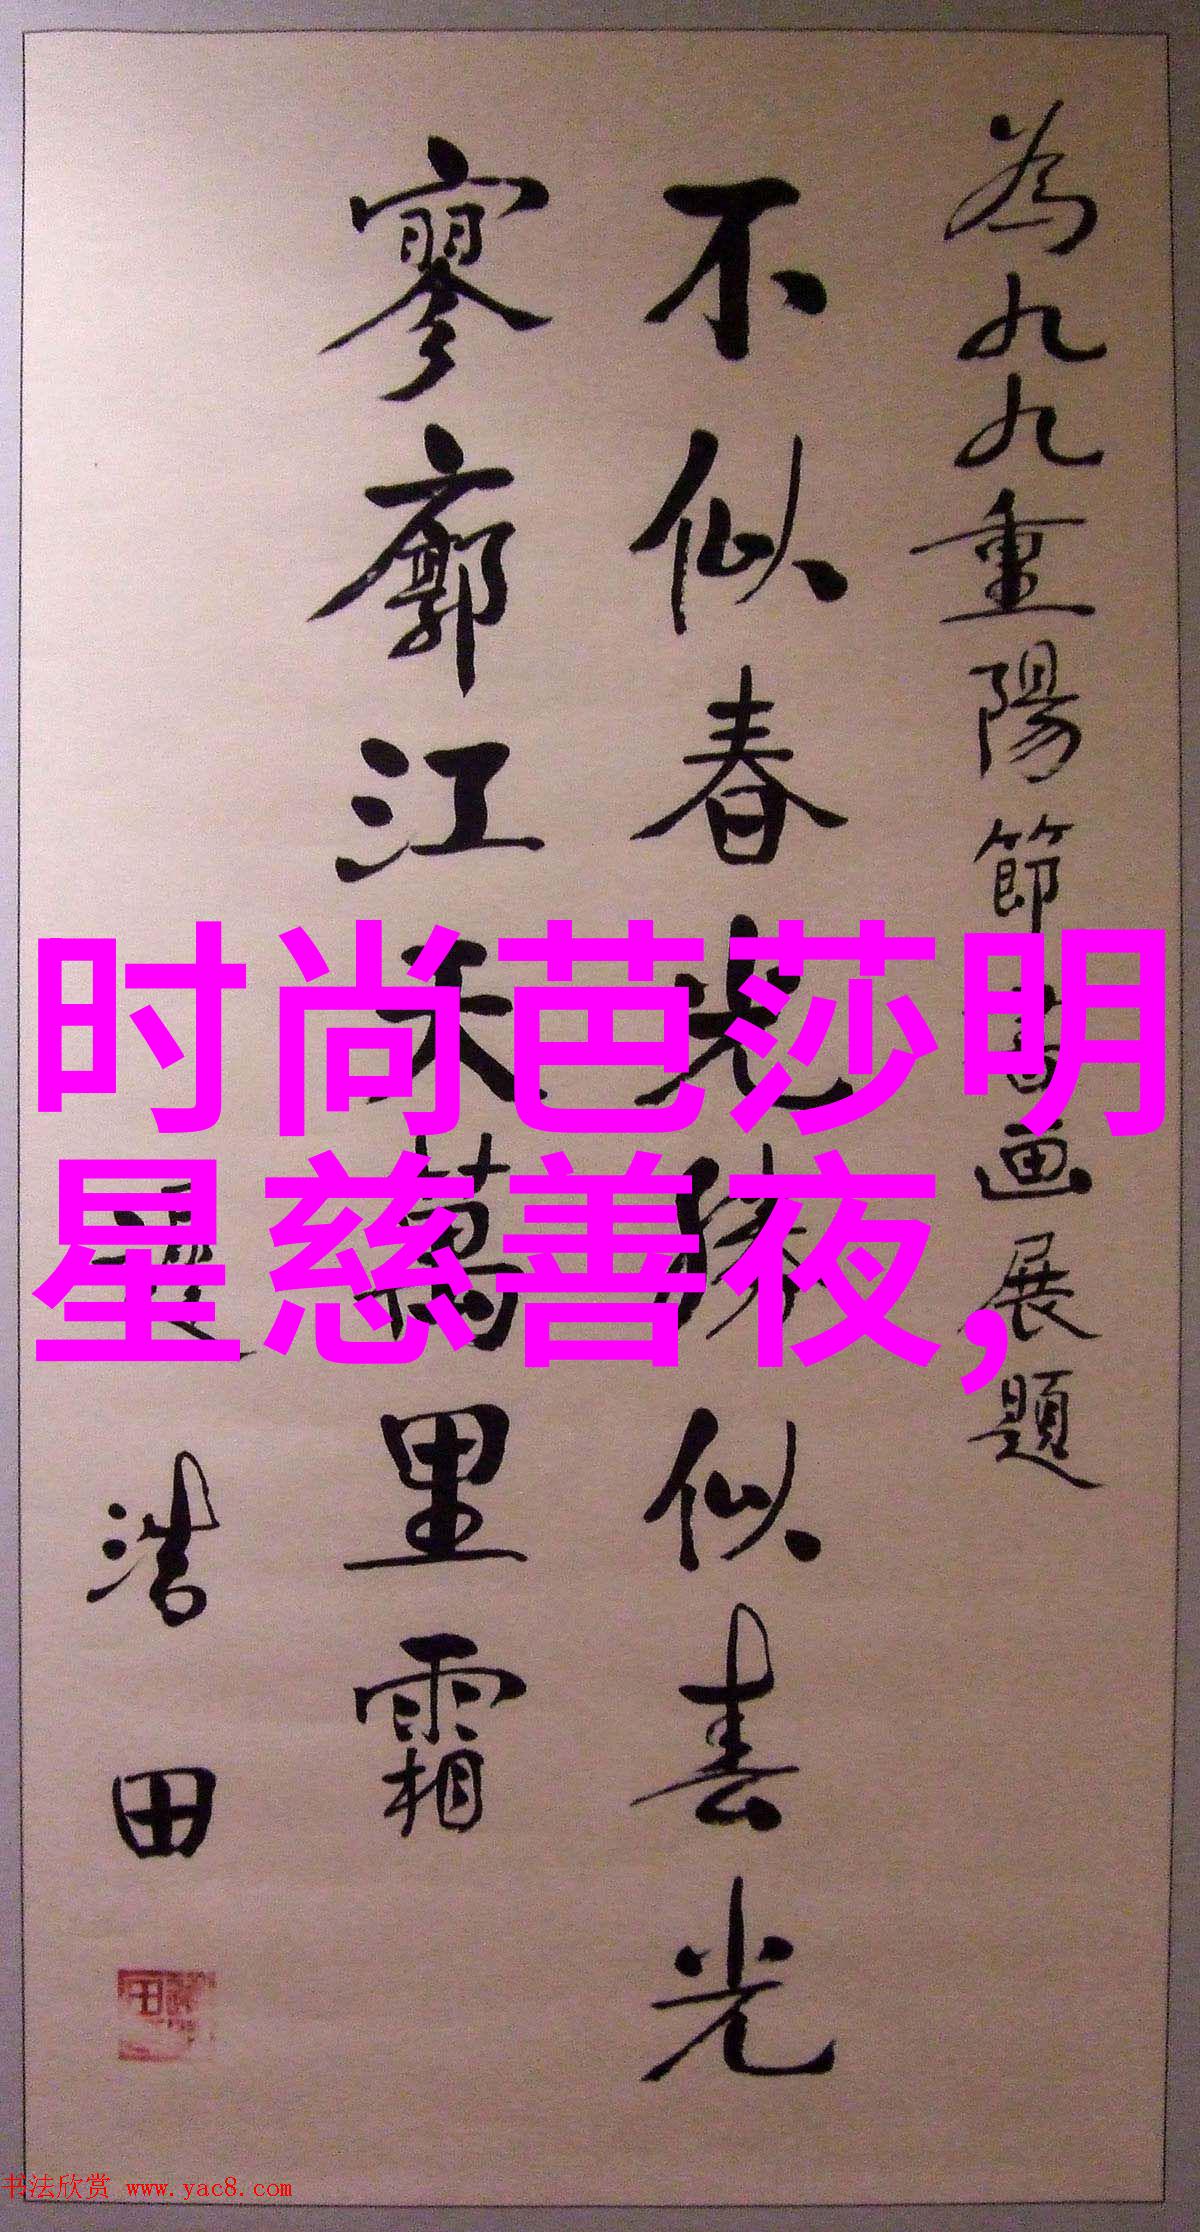 為九九重陽節書画展題
不似春光勝似春光
寥廓江天萬里霜
浩田
时尚芭莎明
星慈善夜，
书法欣赏 www.yac8.com